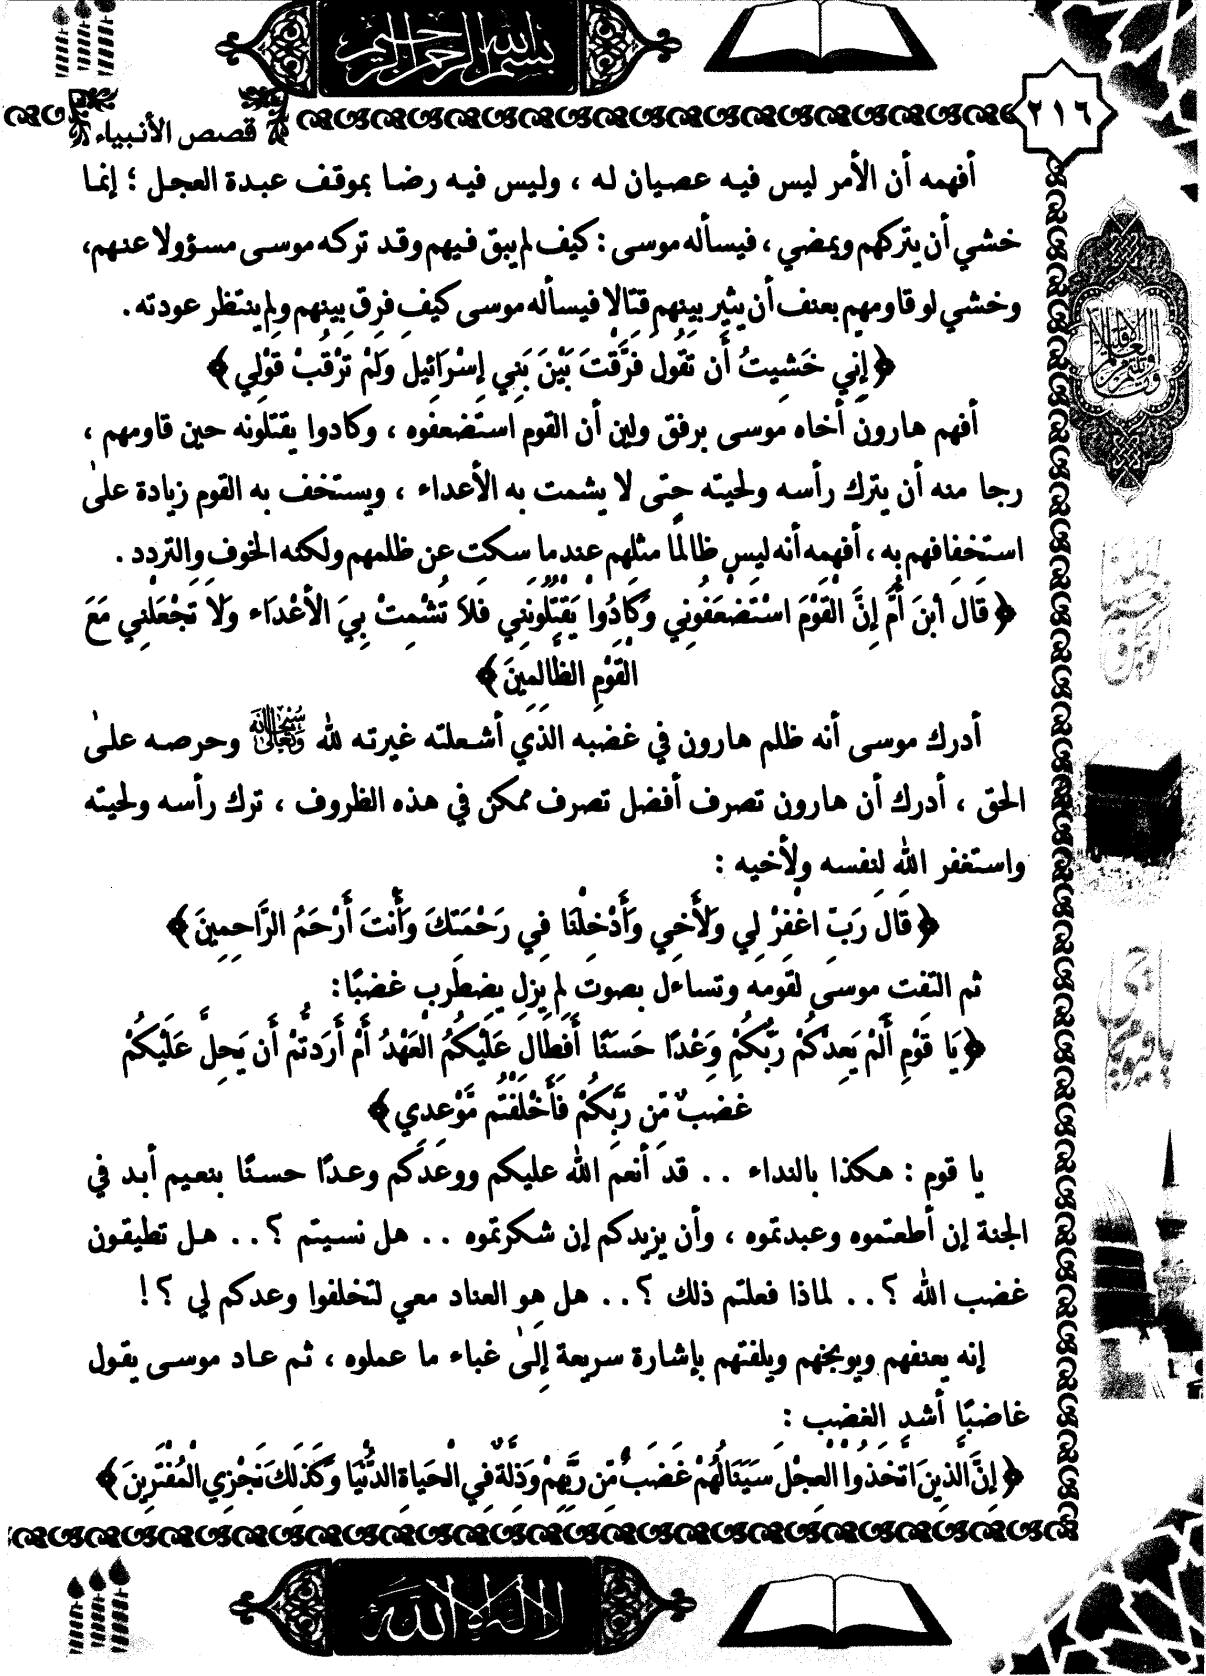 بسم الله الرحمن الرحيم
٢١٦
قصص الأنبياء
أفهمه أن الأمر ليس فيه عصيان له ، وليس فيه رضا بموقف عبدة العجل ؛ إنما
خشي أن يتركهم ويمضي ، فيسأله موسى : كيف لم يبق فيهم وقد تركه موسى مسؤولا عنهم،
وخشي لو قاومهم بعنف أن يثير بينهم قتالا فيسأله موسى كيف فرق بينهم ولم ينتظر عودته .
﴿ إِنِّي خَشِيتُ أَن تَقُولَ فَرَّقْتَ بَيْنَ بَنِي إِسْرَائِيلَ وَلَمْ تَرْقُبْ قَوْلِي ﴾
أفهم هارون أخاه موسى برفق ولين أن القوم استضعفوه ، وكادوا يقتلونه حين قاومهم ،
رجا منه أن يترك رأسه ولحيته حتى لا يشمت به الأعداء ، ويستخف به القوم زيادة على
استخفافهم به ، أفهمه أنه ليس ظالمًا مثلهم عندما سكت عن ظلمهم ولكنه الخوف والتردد .
﴿ قَالَ ابْنَ أُمَّ إِنَّ الْقَوْمَ اسْتَضْعَفُونِي وَكَادُوا يَقْتُلُونَنِي فَلاَ تُشْمِتْ بِيَ الأَعْدَاء وَلاَ تَجْعَلْنِي مَعَ
الْقَوْمِ الظَّالِمِينَ ﴾
أدرك موسى أنه ظلم هارون في غضبه الذي أشعلته غيرته لله سُبْحَانَهُ وَتَعَالَى وحرصه على
الحق ، أدرك أن هارون تصرف أفضل تصرف ممكن في هذه الظروف ، ترك رأسه ولحيته
واستغفر الله لنفسه ولأخيه :
﴿ قَالَ رَبِّ اغْفِرْ لِي وَلأَخِي وَأَدْخِلْنَا فِي رَحْمَتِكَ وَأَنتَ أَرْحَمُ الرَّاحِمِينَ ﴾
ثم التفت موسى لقومه وتساءل بصوت لم يزل يضطرب غضبًا:
﴿ يَا قَوْمِ أَلَمْ يَعِدْكُمْ رَبُّكُمْ وَعْدًا حَسَنًا أَفَطَالَ عَلَيْكُمُ الْعَهْدُ أَمْ أَرَدتُّمْ أَن يَحِلَّ عَلَيْكُمْ
غَضَبٌ مِّن رَّبِّكُمْ فَأَخْلَفْتُم مَّوْعِدِي ﴾
يا قوم : هكذا بالنداء . . قد أنعم الله عليكم ووعدكم وعدًا حسنًا بنعيم أبد في
الجنة إن أطعتموه وعبدتموه ، وأن يزيدكم إن شكرتموه . . هل نسيتم ؟ . . هل تطيقون
غضب الله ؟ . . لماذا فعلتم ذلك ؟ . . هل هو العناد معي لتخلفوا وعدكم لي ؟ !
إنه يعنفهم ويوبخهم ويلفتهم بإشارة سريعة إلى غباء ما عملوه ، ثم عاد موسى يقول
غاضبًا أشد الغضب :
﴿ إِنَّ الَّذِينَ اتَّخَذُوا الْعِجْلَ سَيَنَالُهُمْ غَضَبٌ مِّن رَّبِّهِمْ وَذِلَّةٌ فِي الْحَيَاةِ الدُّنْيَا وَكَذَلِكَ نَجْزِي الْمُفْتَرِينَ ﴾
لا إله إلا الله